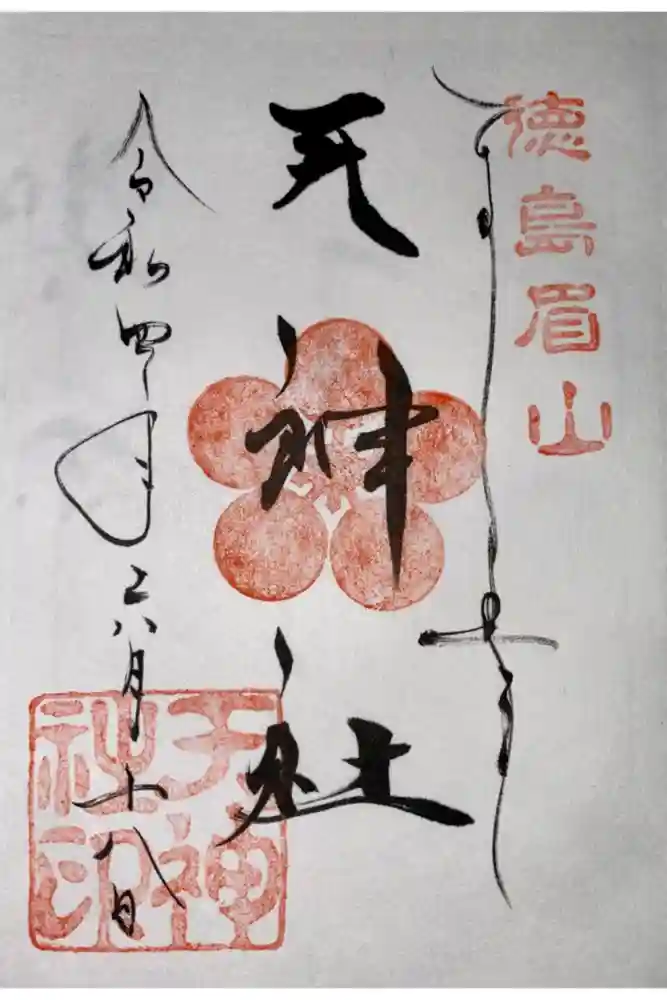 徳島眉山
天神社
令和四年六月十八日
天神
社印